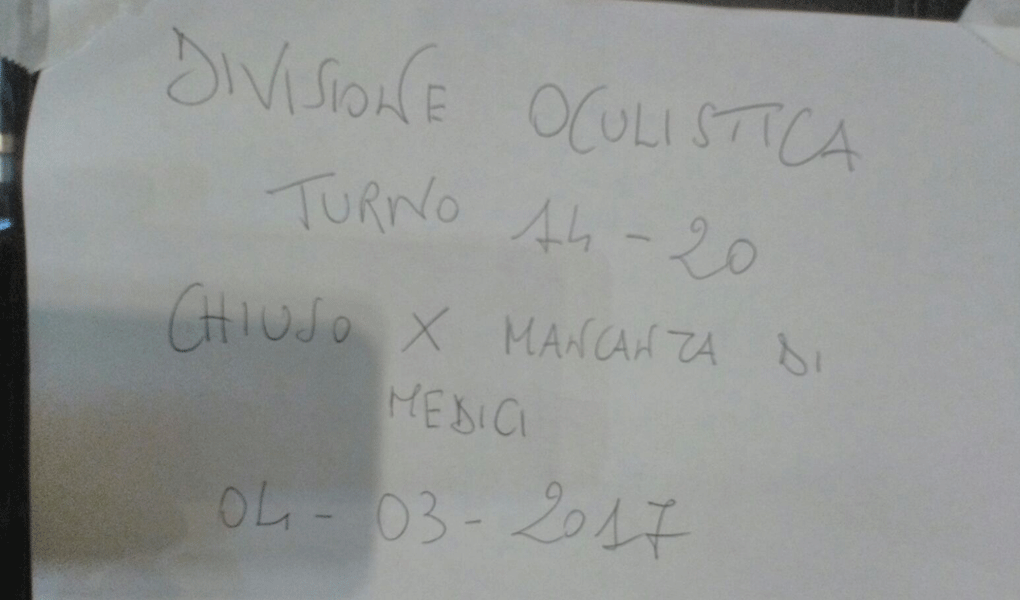 DIVISIONE OCULISTICA
TURNO 14-20
CHIUSO X MANCANZA DI
MEDICI
04-03-2017